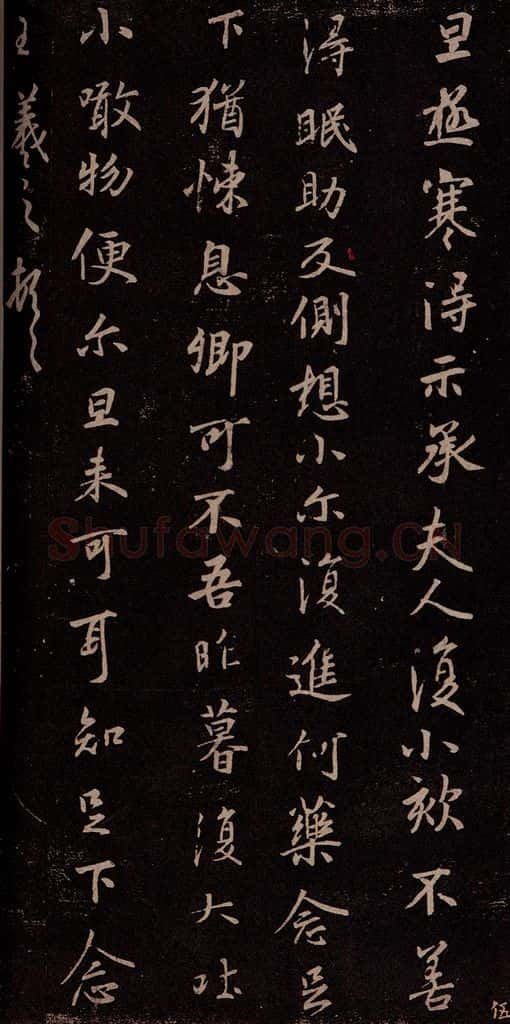 旦極寒得示承夫人復小欬不善
得眠助反側想小尔復進何藥念足
下猶悚息卿可不吾昨暮復大吐
小噉物便尔旦来可耳知足下念
王羲之頓
伍
Shufawang.CN